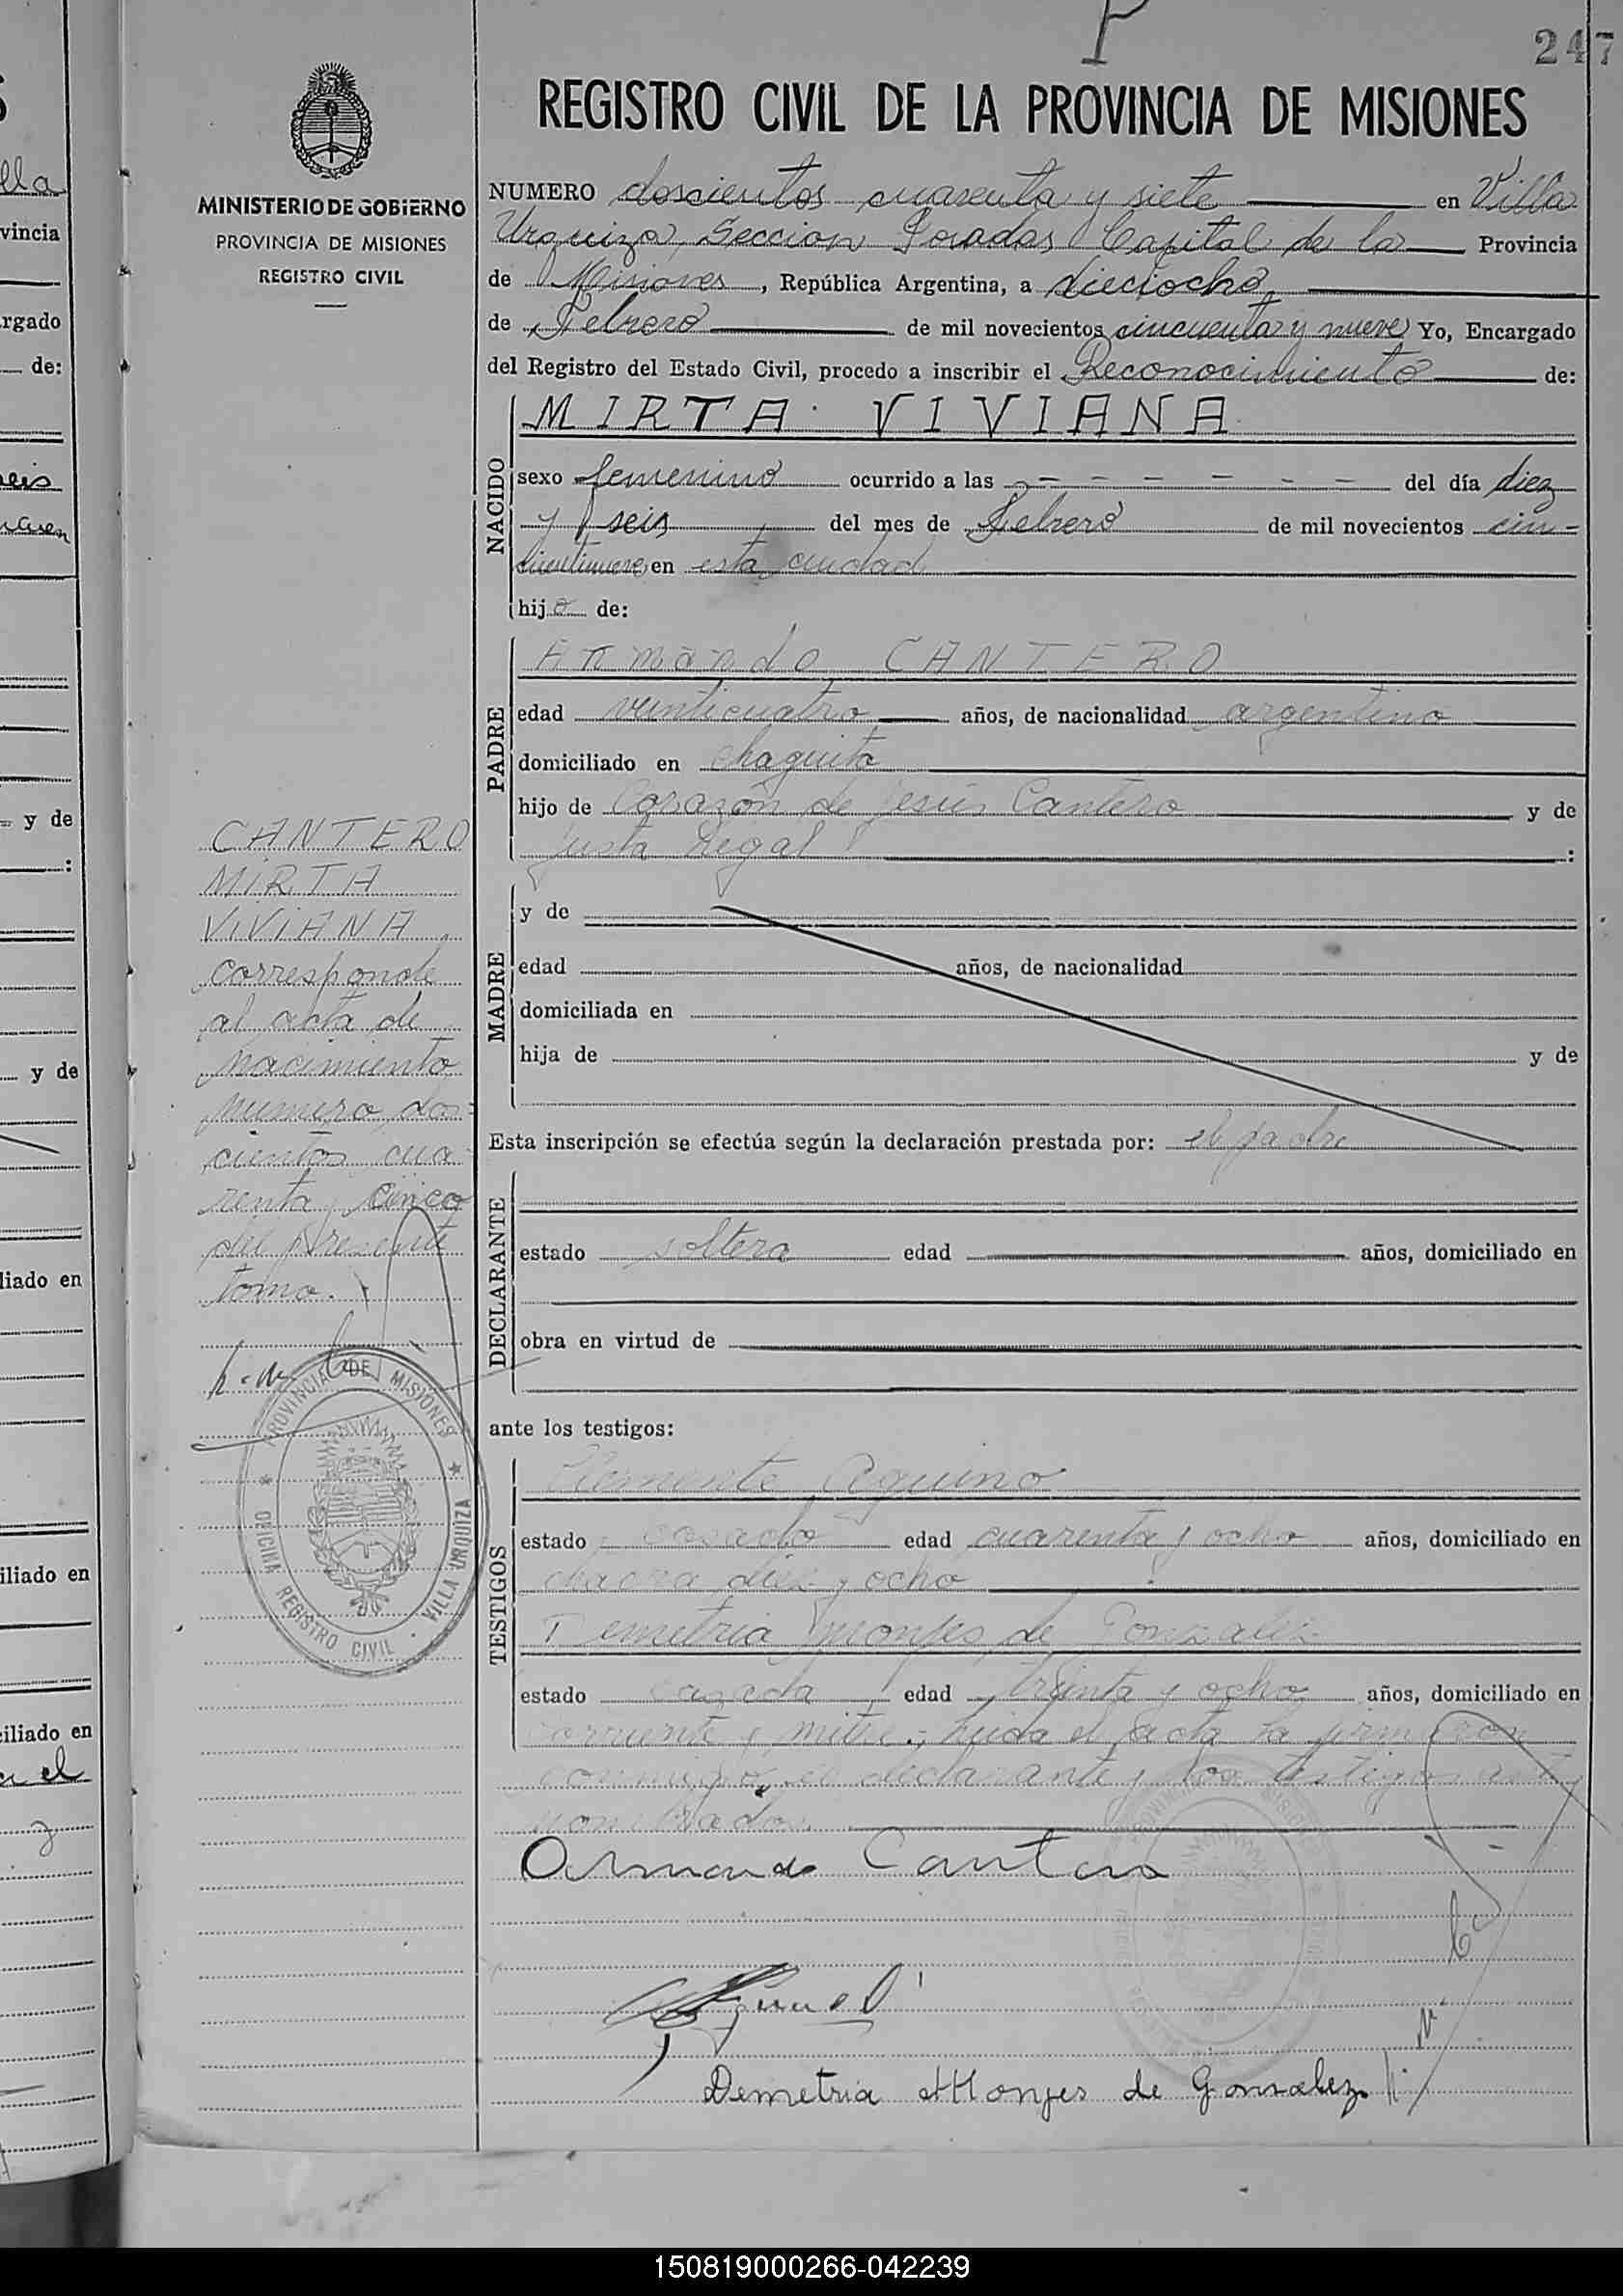 P
247
REGISTRO CIVIL DE LA PROVINCIA DE MISIONES
MINISTERIO DE GOBIERNO
PROVINCIA DE MISIONES
REGISTRO CIVIL
NUMERO doscientos cuarenta y siete en Villa
Urquiza, Seccion Posadas Capital de la Provincia
de Misiones, República Argentina, a dieciocho
de Febrero de mil novecientos cincuenta y nueve Yo, Encargado
del Registro del Estado Civil, procedo a inscribir el Reconocimiento de:
NACIDO
MIRTA VIVIANA
sexo femenino ocurrido a las - - - - - - - del día diez
y seis del mes de Febrero de mil novecientos cin-
cuentinueve en esta ciudad
hija de:
PADRE
Armando CANTERO
edad veinticuatro años, de nacionalidad argentino
domiciliado en chaquito
hijo de Corazón de Jesús Cantero y de
Justa Regal :
MADRE
y de
edad años, de nacionalidad
domiciliada en
hija de y de
Esta inscripción se efectúa según la declaración prestada por: el padre
DECLARANTE
estado soltero edad años, domiciliado en
obra en virtud de
ante los testigos:
TESTIGOS
Clemente Aquino
estado casado edad cuarenta y ocho años, domiciliado en
chacra diez y ocho
Demetria Monjes de Gonzalez
estado casada edad treinta y ocho años, domiciliado en
corriente y mitre.; leida el acta la firmaron
conmigo, el declarante y los testigos
nombrados.
Armando Cantero
Demetria Monjes de Gonzalez
CANTERO
MIRTA
VIVIANA
corresponde
al acta de
nacimiento
numero dos-
cientos cua-
renta y cinco
del presente
tomo.
PROVINCIA DE MISIONES
OFICINA REGISTRO CIVIL - VILLA URQUIZA
lla
vincia
rgado
de:
y de
:
y de
liado en
iliado en
ciliado en
el
150819000266-042239